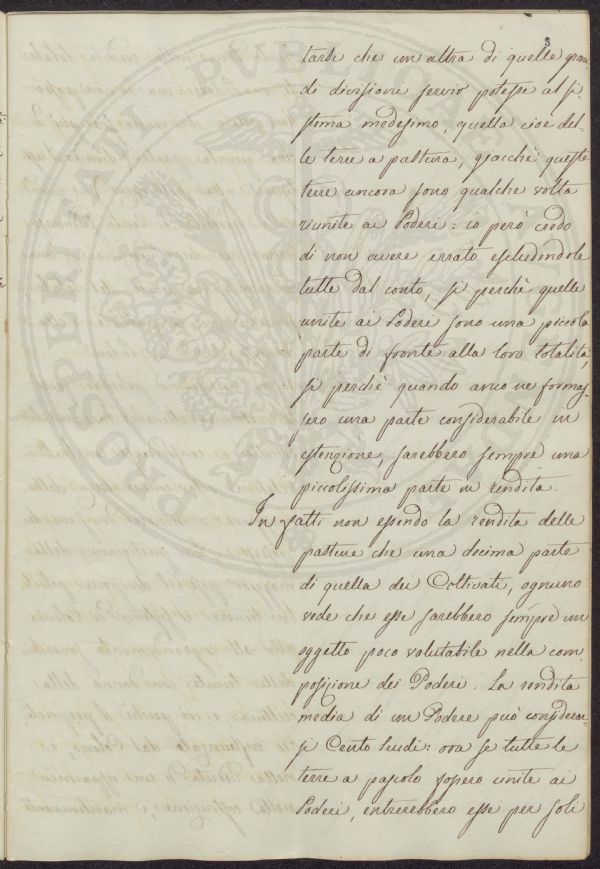 3
tarsi che un altra di quelle gran-
di divisioni servir potesse al si-
stema medesimo, quella cioè del-
le terre a pastura, giacchè queste
terre ancora sono qualche volta
riunite ai Poderi: io però credo
di non avere errato escludendole
tutte dal conto, sì perchè quelle
unite ai Poderi sono una piccola
parte di fronte alla loro totalità,
sì perchè quando anco ne formas-
sero una parte considerabile in
estenzione, sarebbero sempre una
piccolissima parte in rendita.
In fatti non essendo la rendita delle
pasture che una decima parte
di quella dei Coltivati, ognuno
vede che esse sarebbero sempre un
oggetto poco valutabile nella com-
posizione dei Poderi. La rendita
media di un Podere può considerar-
si Cento Scudi: ora se tutte le
terre a pascolo fossero unite ai
Poderi, entrerebbero esse per soli
PROSPERITATI PUBLICAE